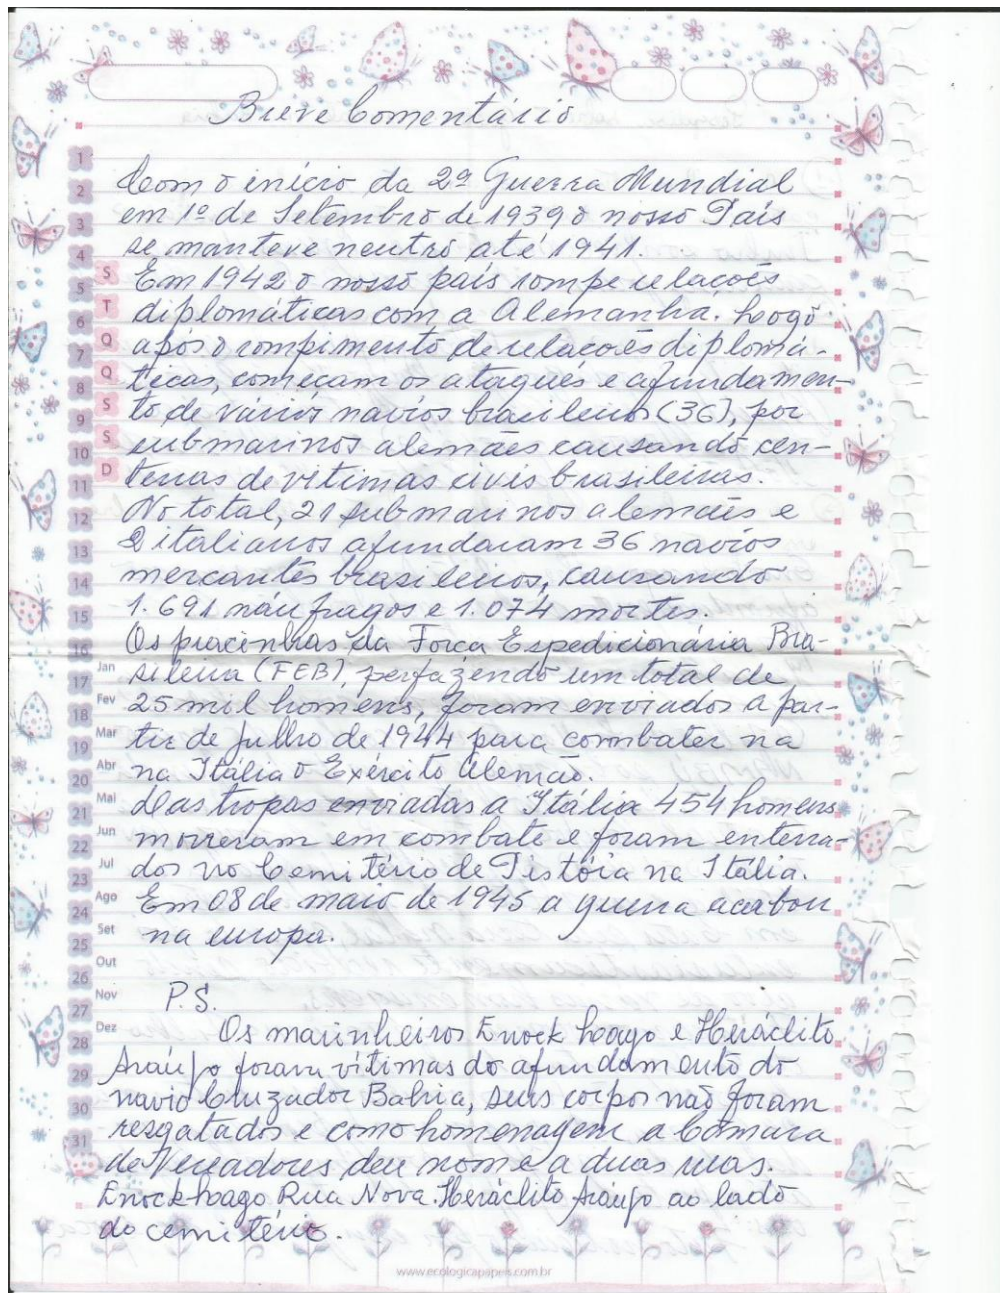 Breve Comentário
Com o início da 2ª Guerra Mundial
em 1º de Setembro de 1939 o nosso País
se manteve neutro até 1941.
Em 1942 o nosso país rompe relações
diplomáticas com a Alemanha. Logo
após o rompimento de relações diplomá-
ticas, começam os ataques e afundamen-
to de vários navios brasileiros (36), por
submarinos alemães causando cen-
tenas de vítimas civis brasileiras.
No total, 21 submarinos alemães e
2 italianos afundaram 36 navios
mercantes brasileiros, causando
1.691 náufragos e 1.074 mortes.
Os pracinhas da Força Expedicionária Bra-
sileira (FEB), perfazendo um total de
25 mil homens, foram enviados a par-
tir de Julho de 1944 para combater na
na Itália o Exército Alemão.
Das tropas enviadas a Itália 454 homens
morreram em combate e foram enterra-
dos no Cemitério de Pistóia na Itália.
Em 08 de maio de 1945 a guerra acabou
na europa.
P.S.
Os marinheiros Enock Lago e Heráclito
Araújo foram vítimas do afundamento do
navio Cruzador Bahia, seus corpos não foram
resgatados e como homenagem a Câmara
de Vereadores deu nome a duas ruas.
Enock Lago Rua Nova. Heráclito Araújo ao lado
do cemitério.
1
2
3
4
5
6
7
8
9
10
11
12
13
14
15
16
17
18
19
20
21
22
23
24
25
26
27
28
29
30
31
S
T
Q
Q
S
S
D
Jan
Fev
Mar
Abr
Mai
Jun
Jul
Ago
Set
Out
Nov
Dez
www.ecologicapapeis.com.br